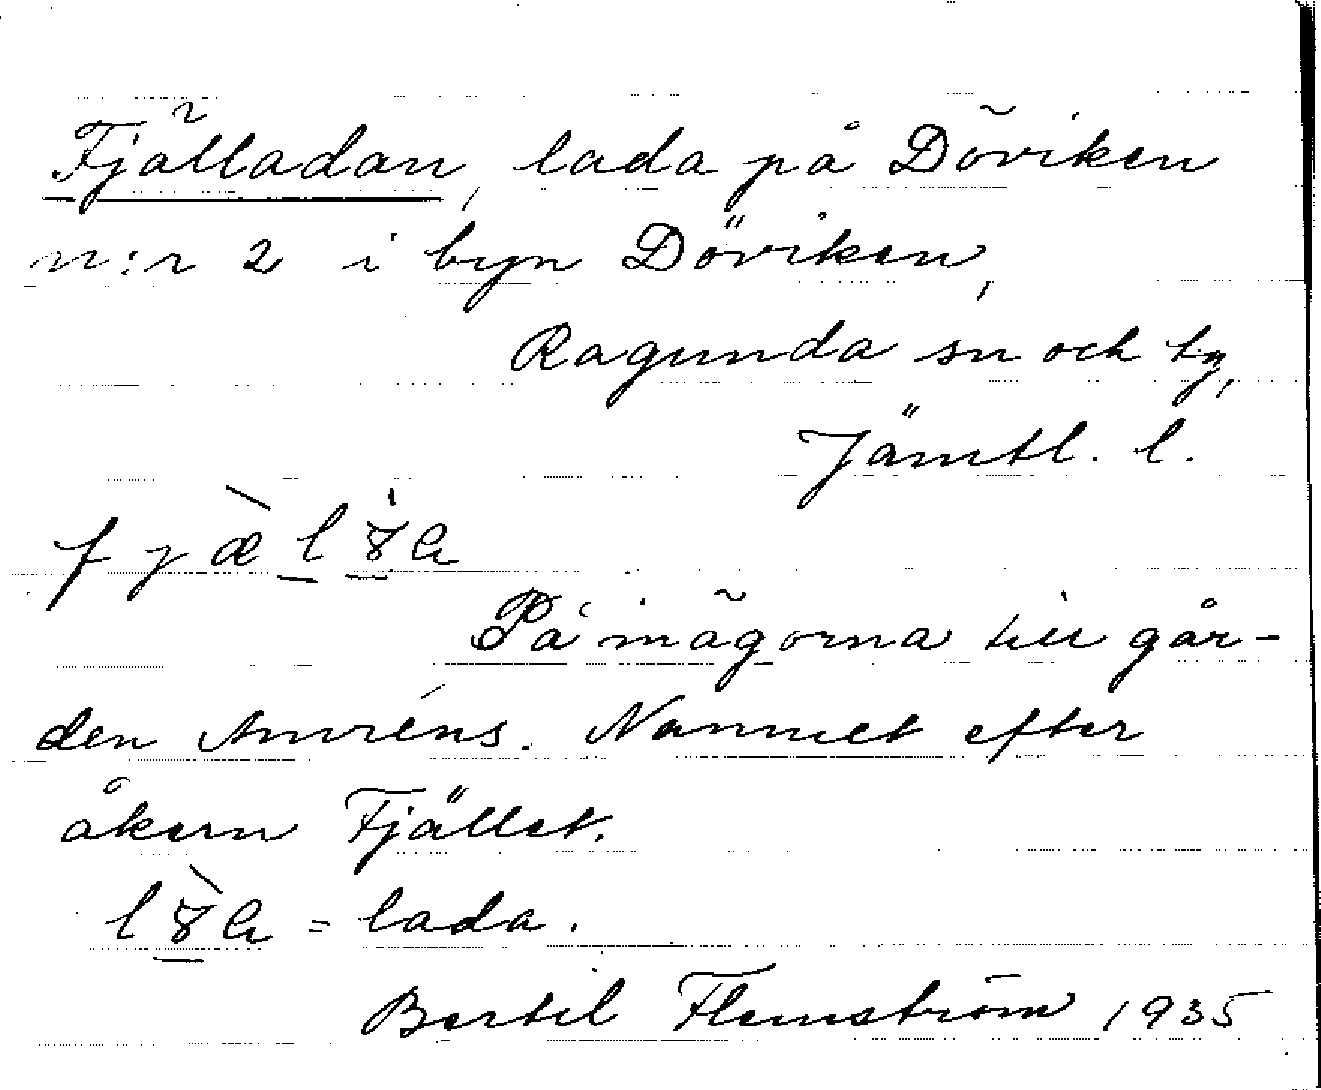 Fjälladan, lada på Döviken
n:r 2 i byn Döviken,
Ragunda sn och tg,
Jämtl. l.
På mägorna till går-
den Amréns. Namnet efter
åkern Fjället.
= lada.
Bertil Flemström 1935